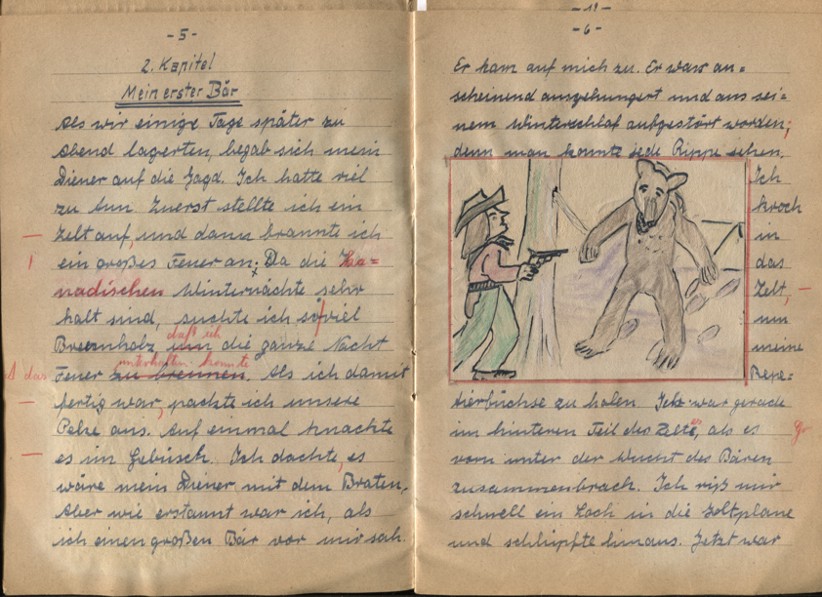 - 5 -
2. Kapitel
Mein erster Bär
Als wir einige Tage später zu
Abend lagerten, begab sich mein
Diener auf die Jagd. Ich hatte viel
zu tun. Zuerst stellte ich ein
Zelt auf, und dann brannte ich
ein großes Feuer an. Da die Ka=
nadischen Winternächte sehr
kalt sind, suchte ich so viel
daß ich
Brennholz um die ganze Nacht
unterhalten konnte
das Feuer zu brennen. Als ich damit
fertig war, packte ich unsere
Pelze aus. Auf einmal knackte
es im Gebüsch. Ich dachte, es
wäre mein Diener mit dem Braten,
Aber wie erstaunt war ich, als
ich einen großen Bär vor mir sah.
- 11 -
- 6 -
Er kam auf mich zu. Er war an=
scheinend ausgehungert und aus sei=
nem Winterschlaf aufgestört worden;
denn man konnte jede Rippe sehen.
Ich
kroch
in
das
Zelt,
um
meine
Repe=
tierbüchse zu holen. Ich war gerade
im hinteren Teil des Zeltes, als es
Gr
vorn unter der Wucht des Bären
zusammenbrach. Ich riß mir
schnell ein Loch in die Zeltplane
und schlüpfte hinaus. Jetzt war